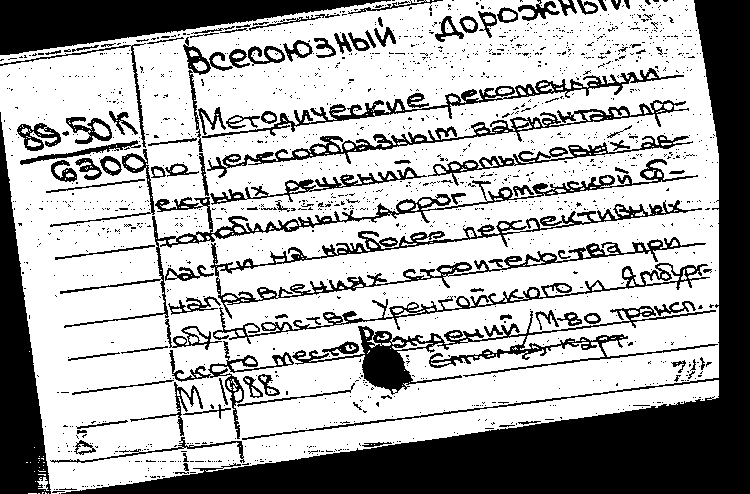 Всесоюзный дорожный
89-50К
6300
Методические рекомендации
по целесообразным вариантам про-
ектных решений промысловых ав-
томобильных дорог Тюменской об-
ласти на наиболее перспективных
направлениях строительства при
обустройстве Уренгойского и Ямбург-
ского месторождений/М-во трансп...
М., 1988. См. след. карт.